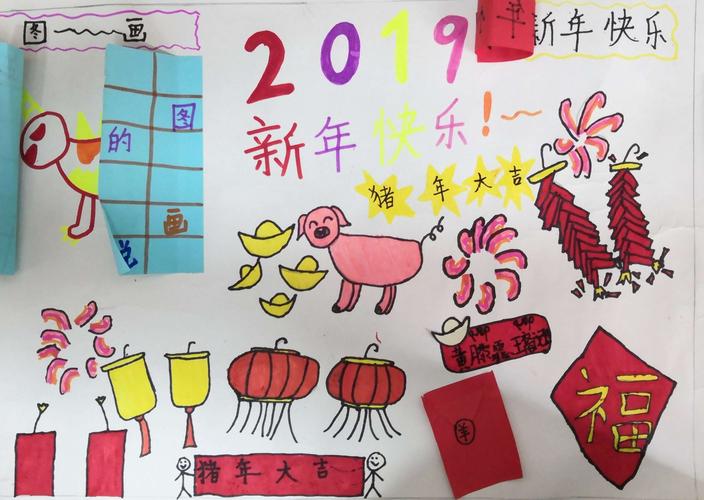 图～画
2019
新年快乐
新年快乐！～
图
的
画
猪年大吉
福
羊
猪年大吉